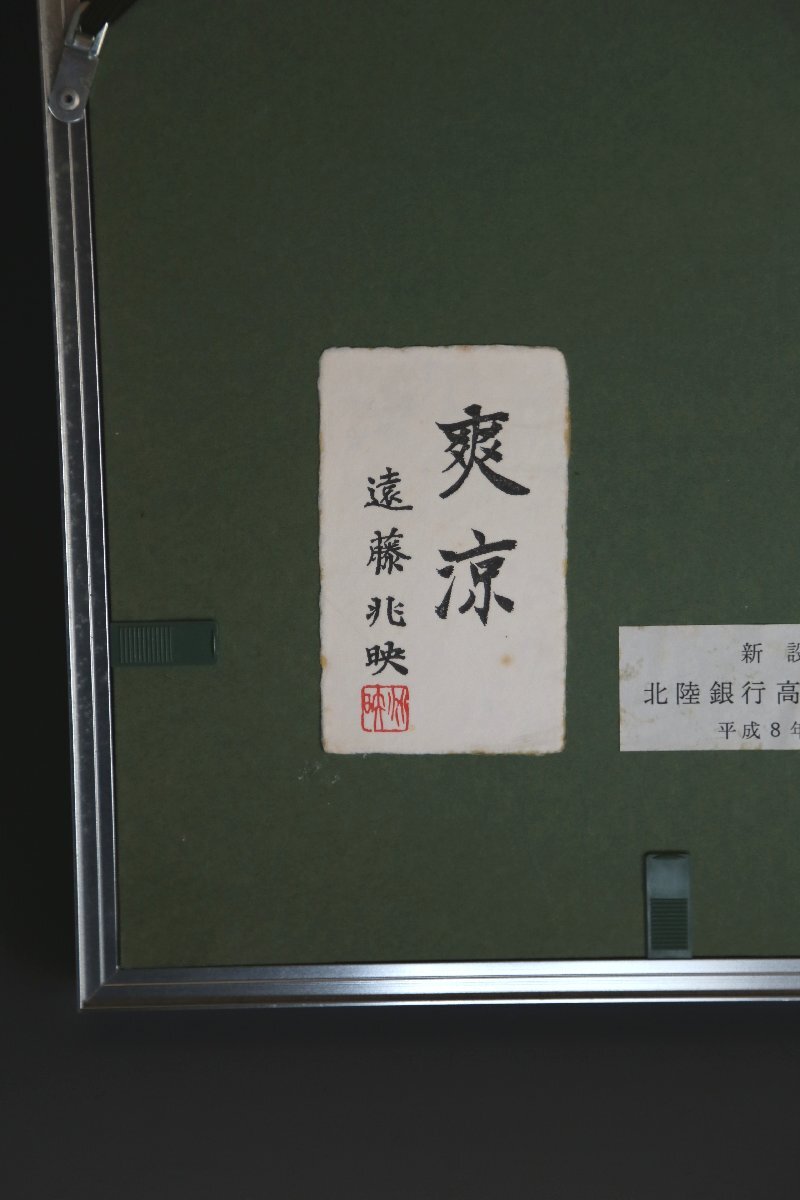 爽涼
遠藤兆映
兆映
新設
北陸銀行高
平成8年